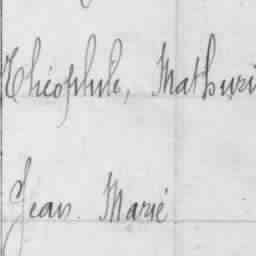 Théophile, Mathuri
Jean Marie